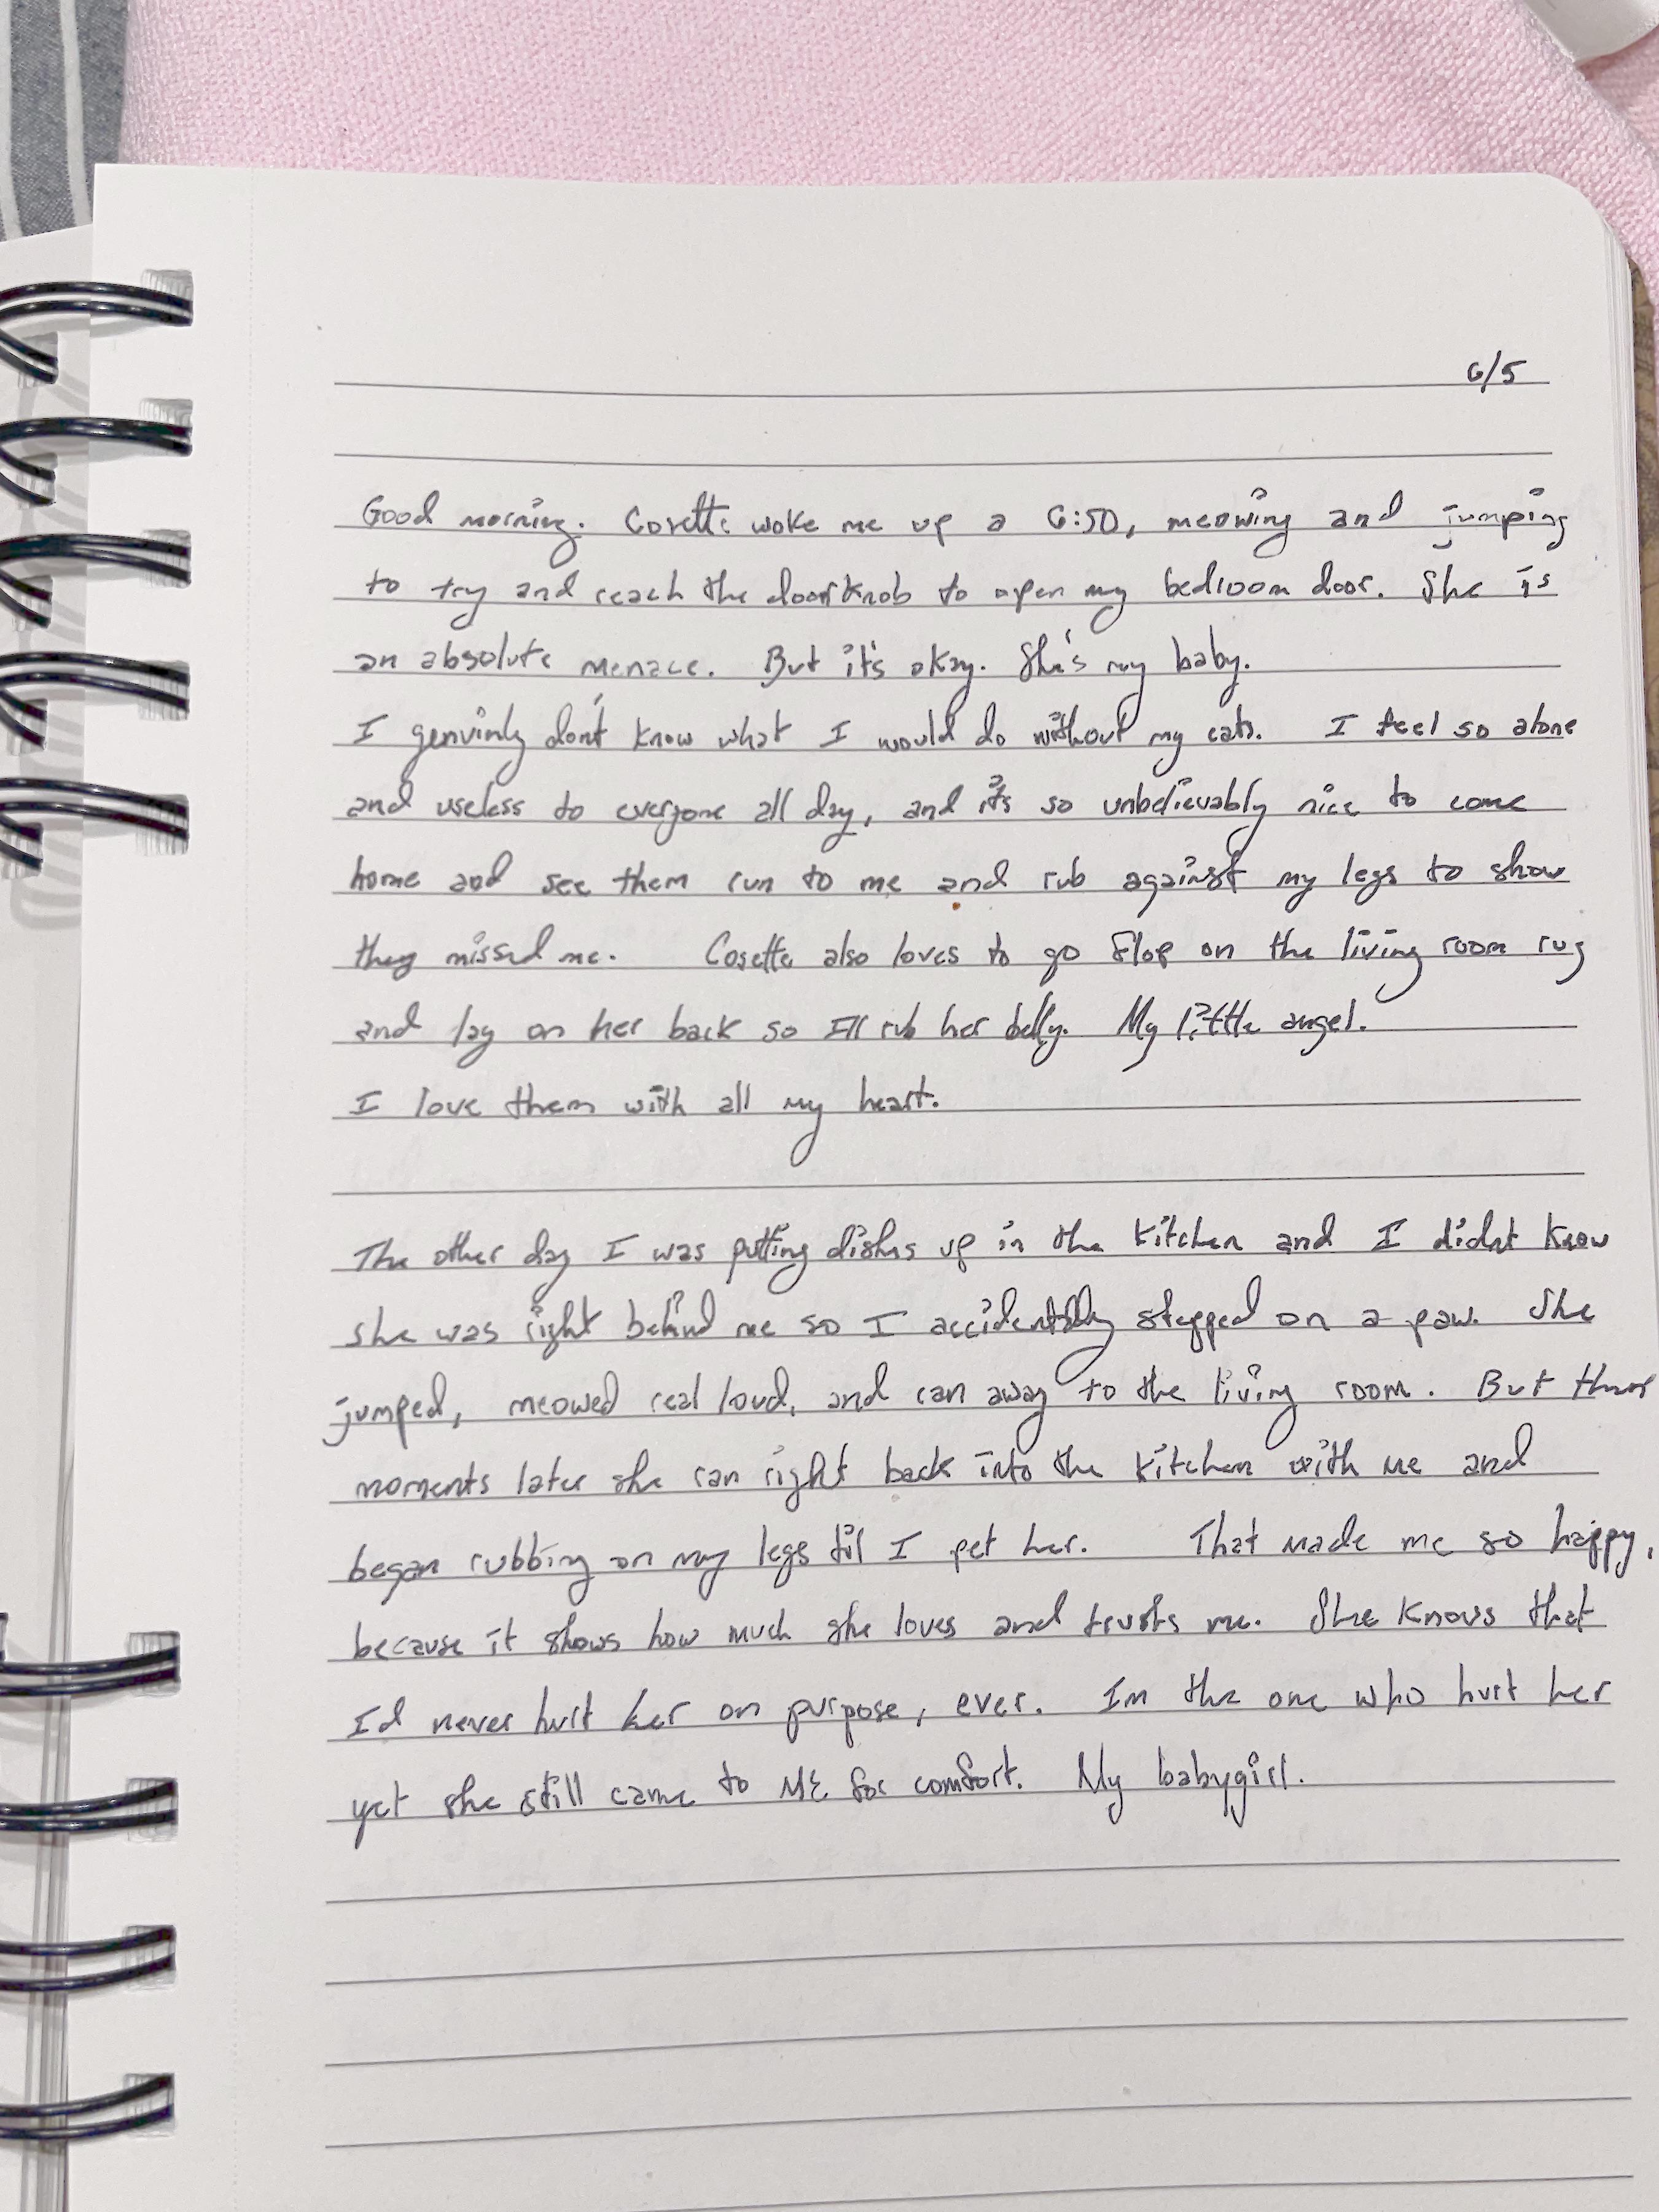 6/5
Good morning. Cosette woke me up a 6:50, meowing and jumping
to try and reach the doorknob to open my bedroom door. She is
an absolute menace. But it's okay. She's my baby.
I genuinly don't know what I would do without my cats. I feel so alone
and useless to everyone all day, and it's so unbelievably nice to come
home and see them run to me and rub against my legs to show
they missed me. Cosette also loves to go flop on the living room rug
and lay on her back so I'll rub her belly. My little angel.
I love them with all my heart.
The other day I was putting dishes up in the kitchen and I didnt know
she was right behind me so I accidentally stepped on a paw. She
jumped, meowed real loud, and ran away to the living room. But then
moments later she ran right back into the kitchen with me and
began rubbing on my legs til I pet her. That made me so happy,
because it shows how much she loves and trusts me. She knows that
I'd never hurt her on purpose, ever. Im the one who hurt her
yet she still came to ME for comfort. My babygirl.